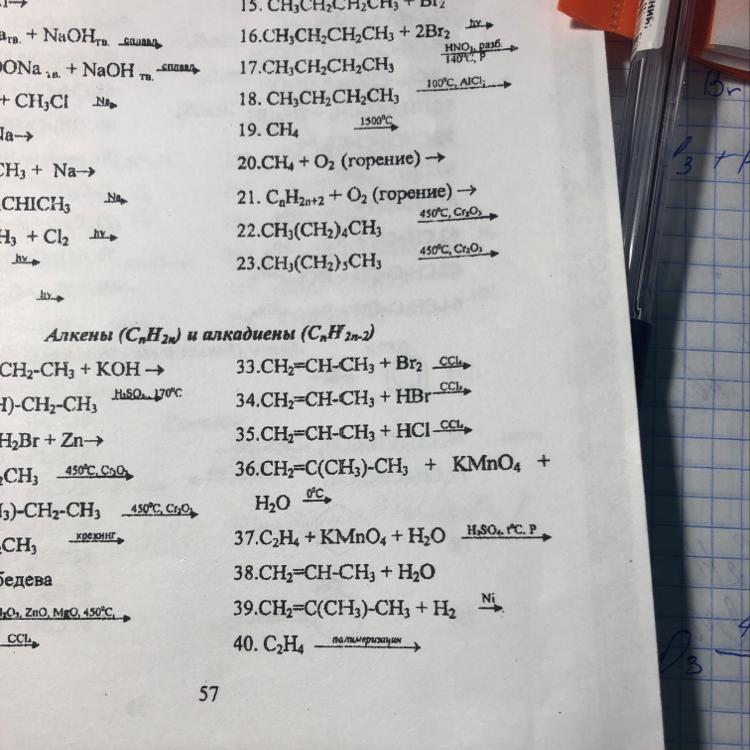 15. CH₃CH₂CH₂CH₃ + Br₂
тв. + NaOHтв. сплавл.
16.CH₃CH₂CH₂CH₃ + 2Br₂ hv
OONa тв. + NaOH тв. сплавл.
17.CH₃CH₂CH₂CH₃ HNO₃, разб. 140°C, P
+ CH₃Cl Na
18. CH₃CH₂CH₂CH₃ 100°C, AlCl₃
Na→
19. CH₄ 1500°C
CH₃ + Na→
20.CH₄ + O₂ (горение) →
CHICH₃ Na
21. CₙH₂ₙ₊₂ + O₂ (горение) →
H₃ + Cl₂ hv
22.CH₃(CH₂)₄CH₃ 450°C, Cr₂O₃
hv
23.CH₃(CH₂)₅CH₃ 450°C, Cr₂O₃
hv
Алкены (CₙH₂ₙ) и алкадиены (CₙH₂ₙ₋₂)
CH₂-CH₃ + KOH →
33.CH₂=CH-CH₃ + Br₂ CCl₄
H)-CH₂-CH₃ H₂SO₄, 170°C
34.CH₂=CH-CH₃ + HBr CCl₄
H₂Br + Zn→
35.CH₂=CH-CH₃ + HCl CCl₄
CH₃ 450°C, Cr₂O₃
36.CH₂=C(CH₃)-CH₃ + KMnO₄ +
H₂O 0°C
₃)-CH₂-CH₃ 450°C, Cr₂O₃
37.C₂H₄ + KMnO₄ + H₂O H₂SO₄, t°C, P
CH₃ крекинг
38.CH₂=CH-CH₃ + H₂O
бедева
39.CH₂=C(CH₃)-CH₃ + H₂ Ni
₂O₃, ZnO, MgO, 450°C,
40. C₂H₄ полимеризации
CCl₄
57
Br